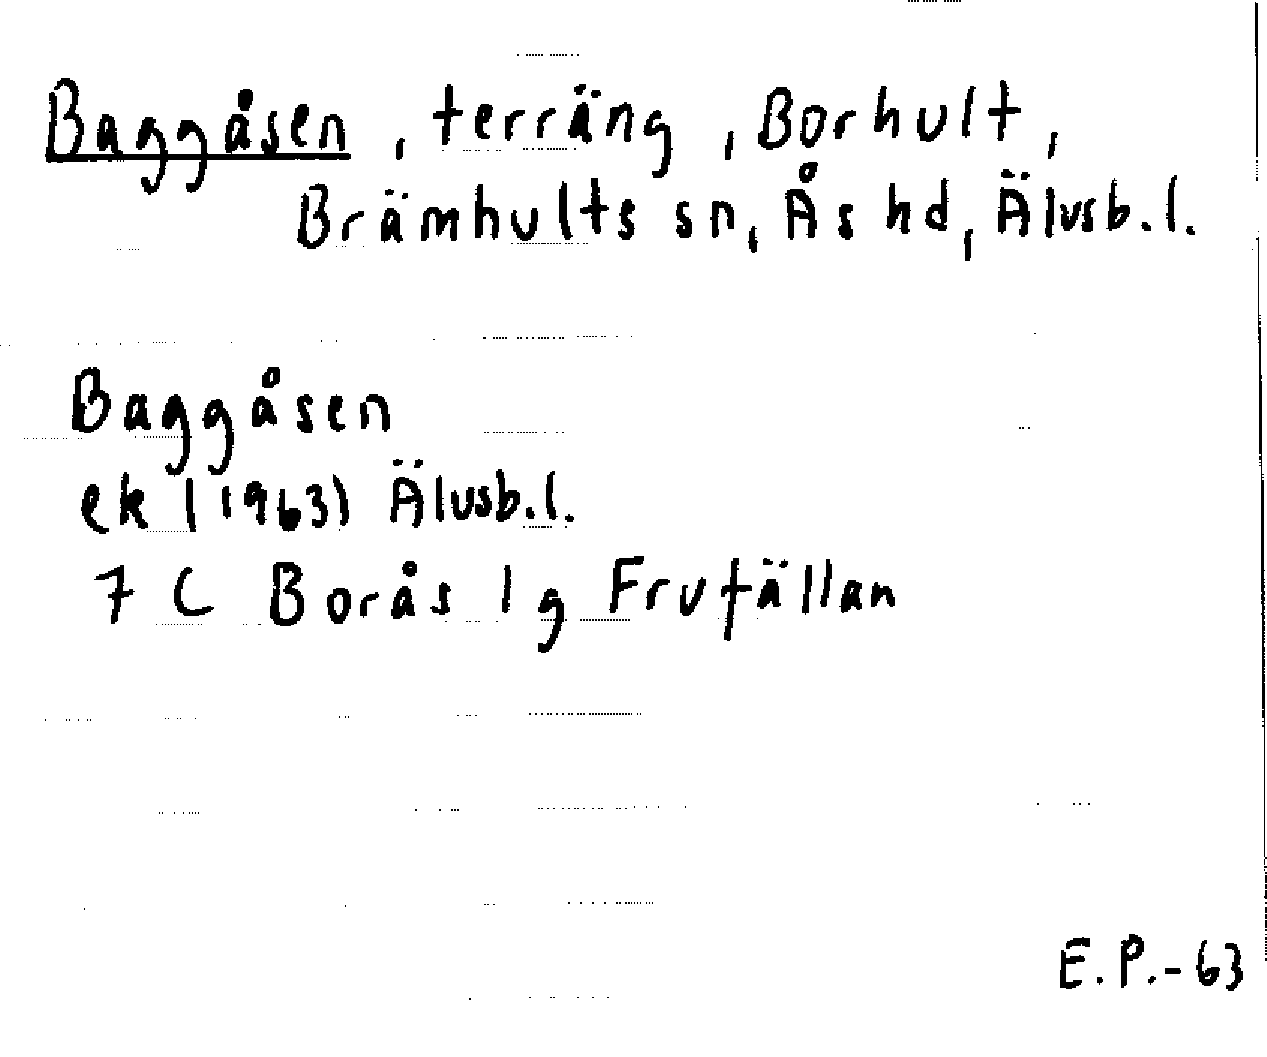 Baggåsen, terräng, Borhult,
Brämhults sn, Ås hd, Älvsb.l.
Baggåsen
ek l (1963) Älvsb.l.
7 C Borås 1 g Frufällan
E.P.-63